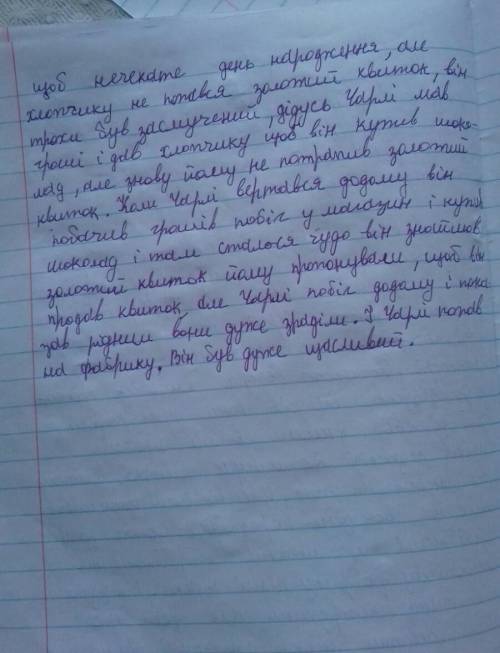 щоб нечекате день народження, але
хлопчику не попався золотий квиток, він
трохи був засмучений, дідусь Чарлі мав
гроші і дав хлопчику щоб він купив шоко-
лад, але знову йому не потрапив золотий
квиток. Коли Чарлі вертався додому він
побачив грошів побіг у магазин і купив
шоколад і там сталося чудо він знайшов
золотий квиток йому пропонували, щоб він
продав квиток, але Чарлі побіг додому і пока
зав рідним вони дуже зраділи. І Чарлі попав
на фабрику. Він був дуже щасливий.